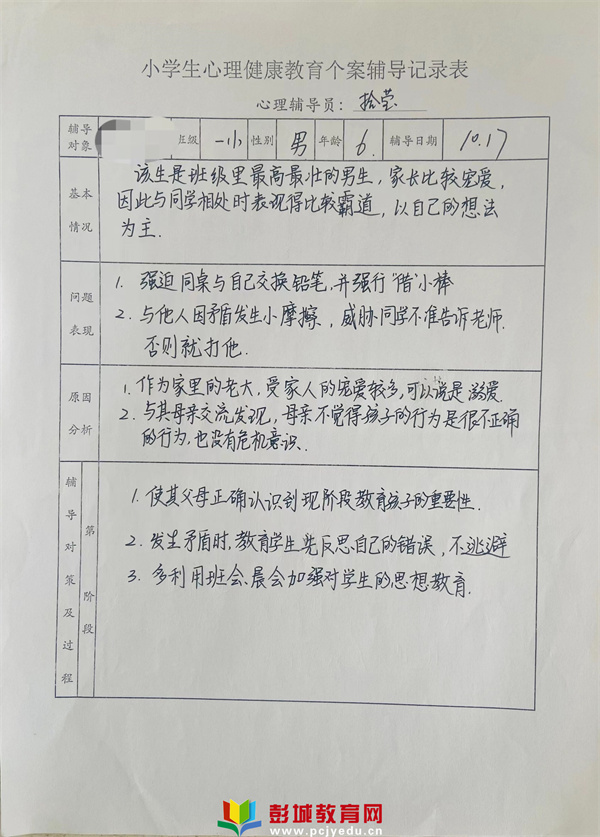 小学生心理健康教育个案辅导记录表
心理辅导员：拾莹
辅导对象 班级 一(小) 性别 男 年龄 6. 辅导日期 10.17
基本情况
该生是班级里最高最壮的男生，家长比较宠爱，
因此与同学相处时表现得比较霸道，以自己的想法
为主.
问题表现
1. 强迫同桌与自己交换铅笔，并强行“借”小棒
2. 与他人因矛盾发生小摩擦，威胁同学不准告诉老师.
否则就打他.
原因分析
1. 作为家里的老大，受家人的宠爱较多，可以说是溺爱.
2. 与其母亲交流发现，母亲不觉得孩子的行为是很不正确
的行为，也没有危机意识.
辅导对策及过程
第 阶段
1. 使其父母正确认识到现阶段教育孩子的重要性.
2. 发生矛盾时，教育学生先反思自己的错误，不逃避
3. 多利用班会、晨会加强对学生的思想教育.
彭城教育网
www.pcjyedu.cn